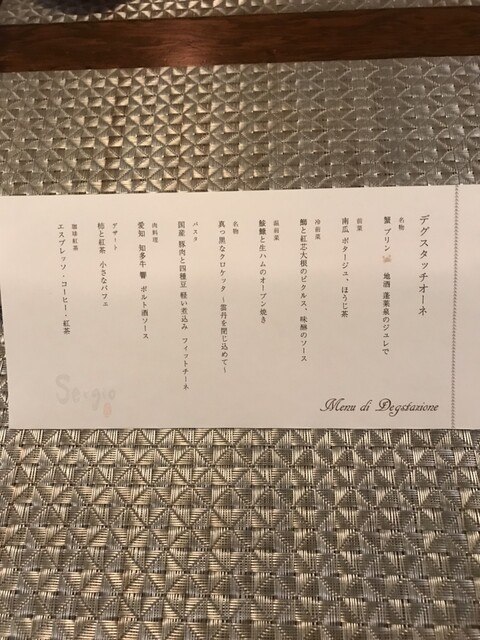 デグスタッチオーネ
名物
蟹 プリン 地酒 蓬莱泉のジュレで
前菜
南瓜 ポタージュ、ほうじ茶
冷前菜
鰤と紅芯大根のピクルス、味醂のソース
温前菜
鮟鱇と生ハムのオーブン焼き
名物
真っ黒なクロケッタ ～雲丹を閉じ込めて～
パスタ
国産 豚肉と四種豆 軽い煮込み フィットチーネ
肉料理
愛知 知多牛 響 ポルト酒ソース
デザート
柿と紅茶 小さなパフェ
珈琲紅茶
エスプレッソ・コーヒー・紅茶
Menu di Degstazione
Sergio